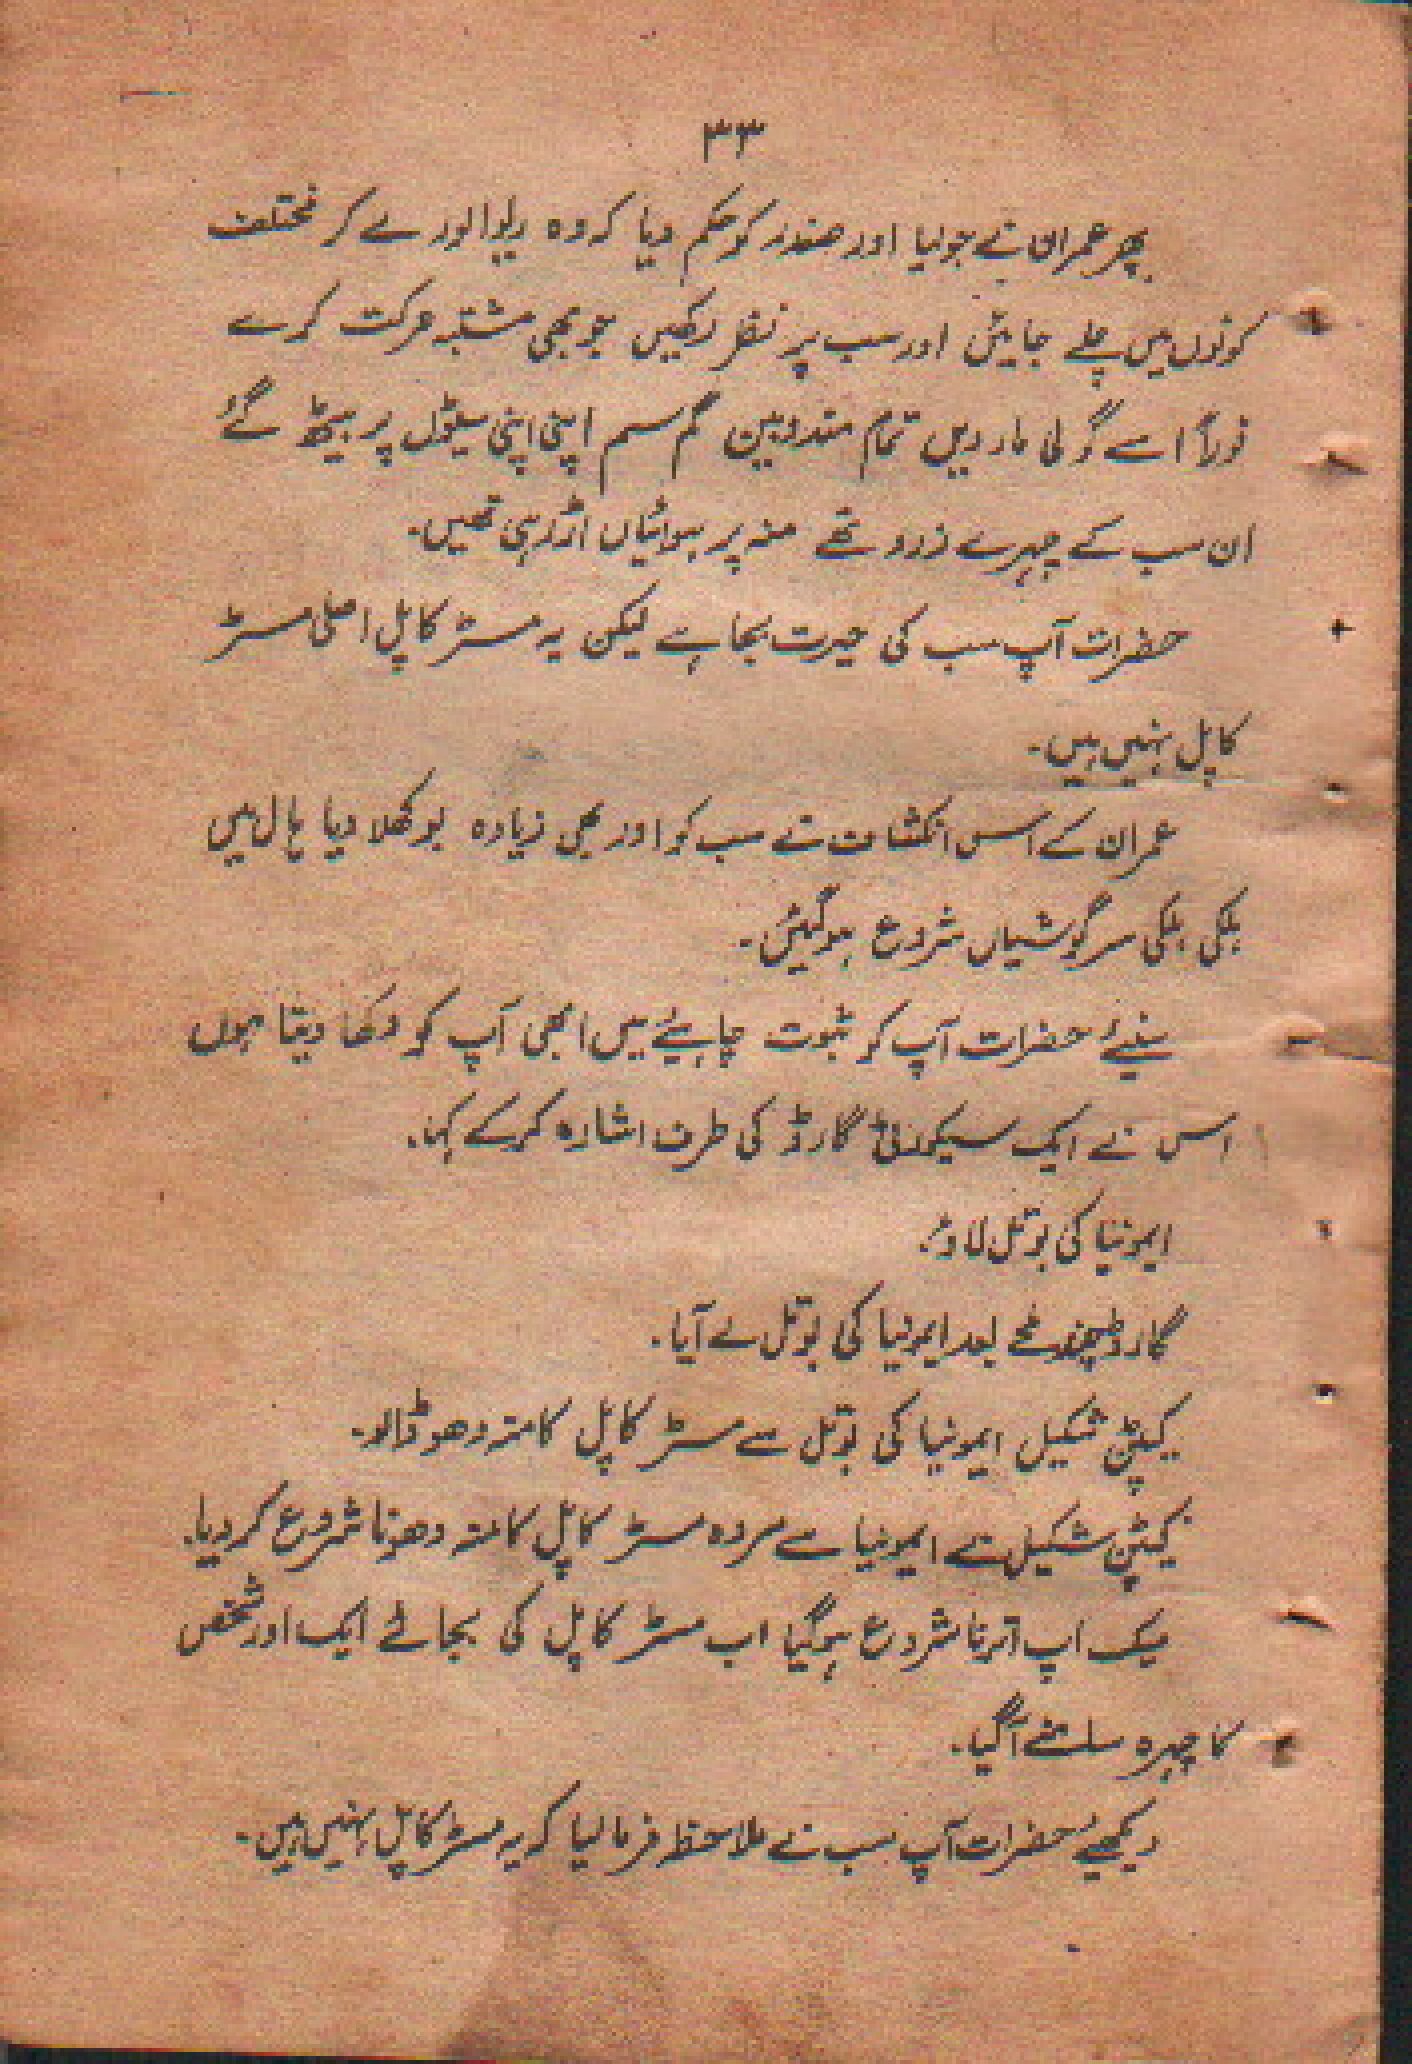 ۳۳
پھر عمران نے جولیا اور صفدر کو حکم دیا کہ وہ ریوالور لے کر مختلف
کونوں میں چلے جائیں اور سب پر نظر رکھیں جو بھی مشتبہ حرکت کرے
فوراً اسے گولی مار دیں تمام مندوبین گم سم اپنی اپنی سیٹوں پر بیٹھ گئے
ان سب کے چہرے زرد تھے منہ پر ہوائیاں اڑ رہی تھیں۔
حضرات آپ سب کی حیرت بجا ہے لیکن یہ مسٹر کاپل اصلی مسٹر
کاپل نہیں ہیں۔
عمران کے اس انکشاف نے سب کو اور بھی زیادہ بوکھلا دیا ہال میں
ہلکی ہلکی سرگوشیاں شروع ہوگئیں۔
سنیئے حضرات آپ کو ثبوت چاہیئے میں ابھی آپ کو دکھا دیتا ہوں
اس نے ایک سیکورٹی گارڈ کی طرف اشارہ کرکے کہا۔
ایمونیا کی بوتل لاؤ۔
گارڈ چند لمحے بعد ایمونیا کی بوتل لے آیا۔
کیپٹن شکیل ایمونیا کی بوتل سے مسٹر کاپل کا منہ دھو ڈالو۔
کیپٹن شکیل نے ایمونیا سے مردہ مسٹر کاپل کا منہ دھونا شروع کر دیا۔
میک اپ اترنا شروع ہوگیا اب مسٹر کاپل کی بجائے ایک اور شخص
کا چہرہ سامنے آگیا۔
دیکھیئے حضرات آپ سب نے ملاحظہ فرمالیا کہ یہ مسٹر کاپل نہیں ہیں۔